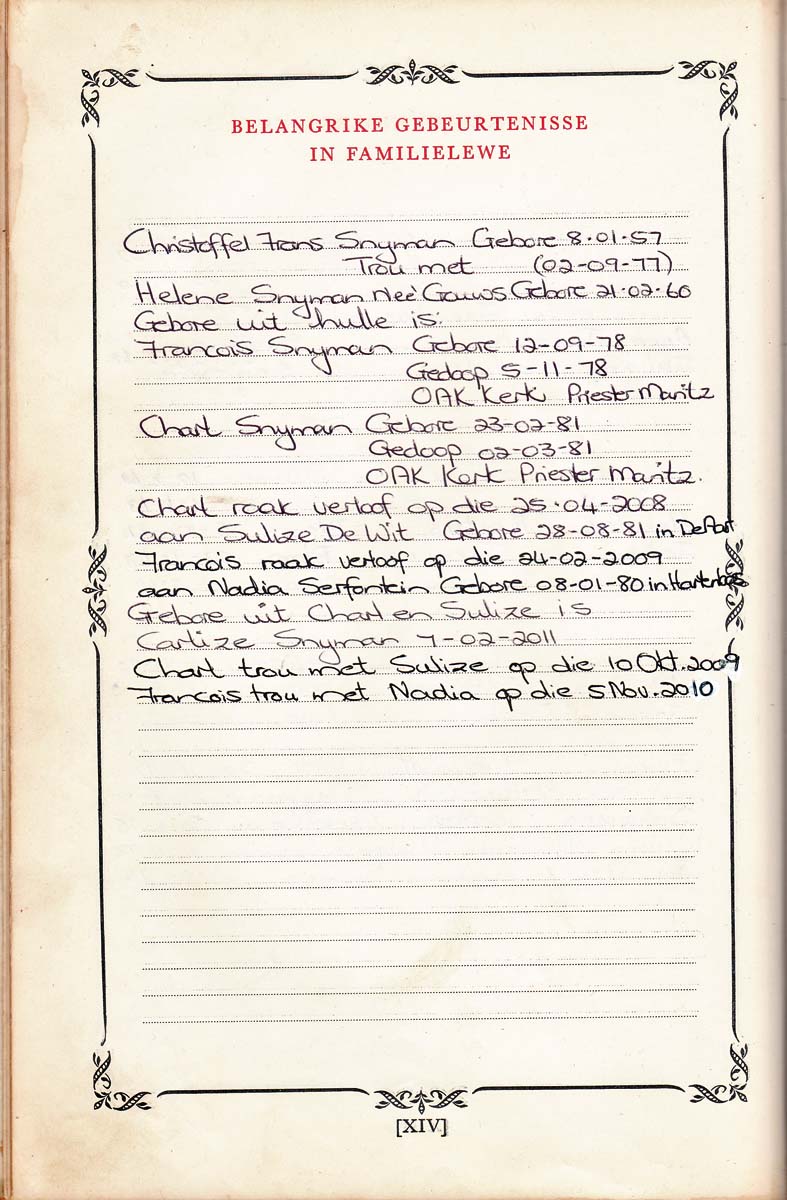 BELANGRIKE GEBEURTENISSE
IN FAMILIELEWE
Christoffel Frans Snyman Gebore 8.01.57
Trou met (02-09-77)
Helene Snyman Neé Gouws Gebore 21.02.60
Gebore uit hulle is:
Francois Snyman Gebore 12-09-78
Gedoop 5-11-78
OAK Kerk Priester Maritz
Charl Snyman Gebore 23-02-81
Gedoop 02-03-81
OAK Kerk Priester Maritz.
Charl raak verloof op die 25.04-2008
aan Sulize De Wit Gebore 28-08-81 in De Aar
Francois raak verloof op die 24-02-2009
aan Nadia Serfontein Gebore 08-01-80 in Hartenbos
Gebore uit Charl en Sulize is
Carlize Snyman 7-02-2011
Charl trou met Sulize op die 10 Okt. 2009
Francois trou met Nadia op die 5 Nov. 2010
[XIV]